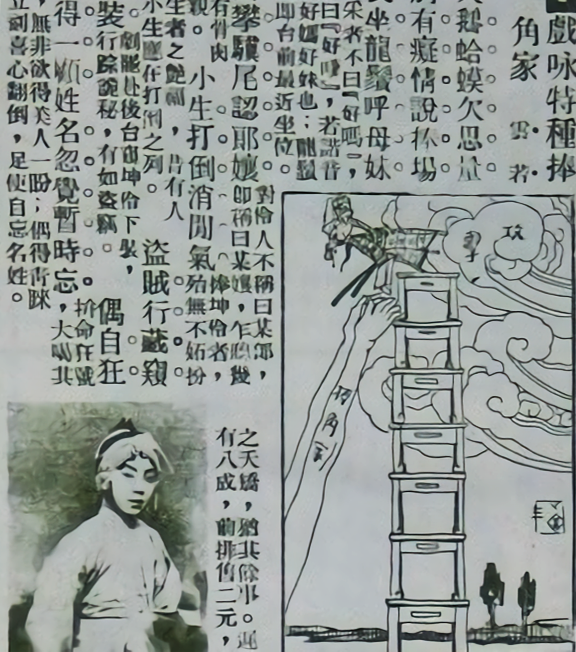 戲咏特種捧
角家
雲若
天鵝蛤蟆欠思量
有癡情說捧場
坐龍鬚呼母妹
采者不曰『好嗎』，
曰『好嘿』，若諧音
好媽好妹也；龍鬚
即台前最近坐位。
攀驥尾認耶孃
對伶人不稱曰某郎，
卽稱曰某孃，
有骨肉
親。
小生打倒消閒氣
捧坤伶者，
殆無不妬扮
生者之艷福，昔有人
小生應在打倒之列。
盜賊行藏窺
劇院赴後台窺坤伶下裝，
裝行踪詭秘，有如盜竊。
偶自狂
得一顧姓名忽覺暫時忘，
拚命狂號
大喝其
無非欲得美人一盼；偶得青睞
立刻喜心翻倒，足使自忘名姓。
之夭矯，猶其餘事。
有八成，前排售二元，